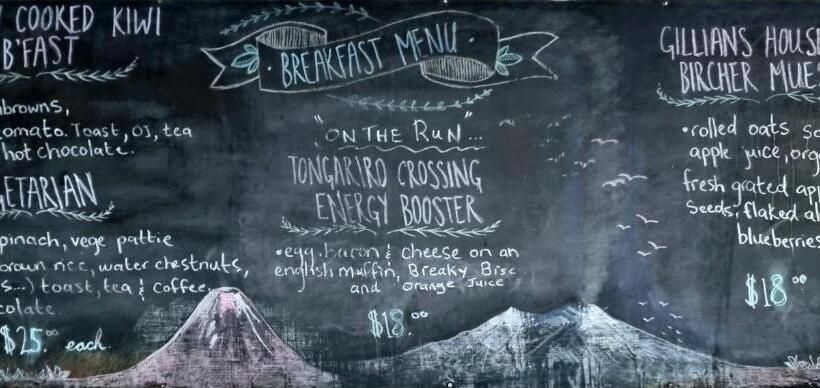 COOKED KIWI
B'FAST
browns,
omato. Toast, OJ, tea
hot chocolate.
GETARIAN
pinach, vege pattie
brown rice, water chestnuts,
s...) toast, tea & coffee,
colate
$25.00 each.
BREAKFAST MENU
"ON THE RUN"...
TONGARIRO CROSSING
ENERGY BOOSTER
•egg, bacon & cheese on an
english muffin, Breaky Bisc
and orange Juice
$18.00
GILLIANS HOUSE
BIRCHER MUES
•rolled oats so
apple juice, org
fresh grated app
Seeds, flaked al
blueberries
$18.00